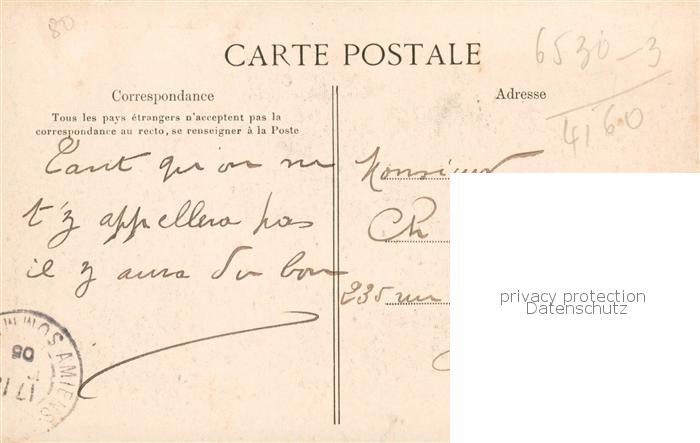 80
CARTE POSTALE
6530-3
4160
Correspondance
Tous les pays étrangers n'acceptent pas la
correspondance au recto, se renseigner à la Poste
Tant qu'on ne
t'y appellera pas
il y aura du bon
Adresse
Monsieur
Ch
235 rue
privacy protection
Datenschutz
AMIENS SOMME
17
05